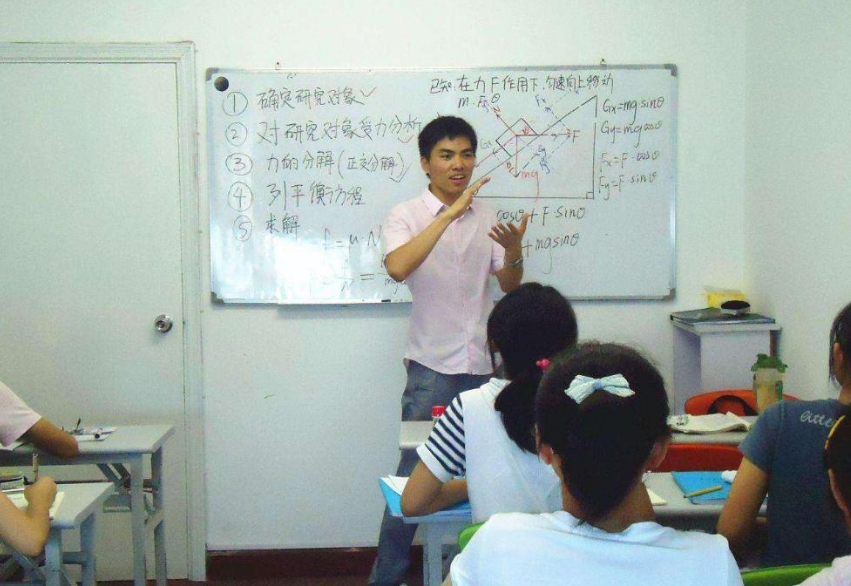 ① 确定研究对象✓
② 对研究对象受力分析
③ 力的分解(正交分解)
④ 列平衡方程
⑤ 求解
已知:在力F作用下,匀速向上
m. θ
Gx=mg·sinθ
Gy=mg·cosθ
Fx=F·cosθ
Fy=F·sinθ
Fx
F
Gx
Gy
mg
cosθ+F·sinθ
+mgsinθ
f=μ·N